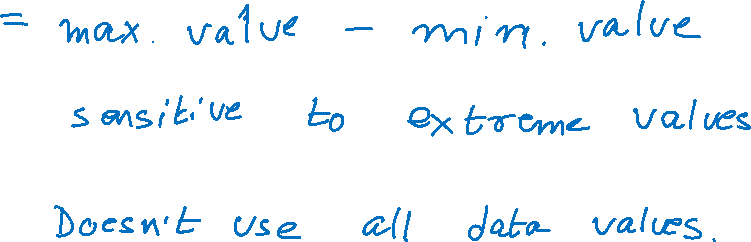 = max. value - min. value
sensitive to extreme values
Doesn't use all data values.